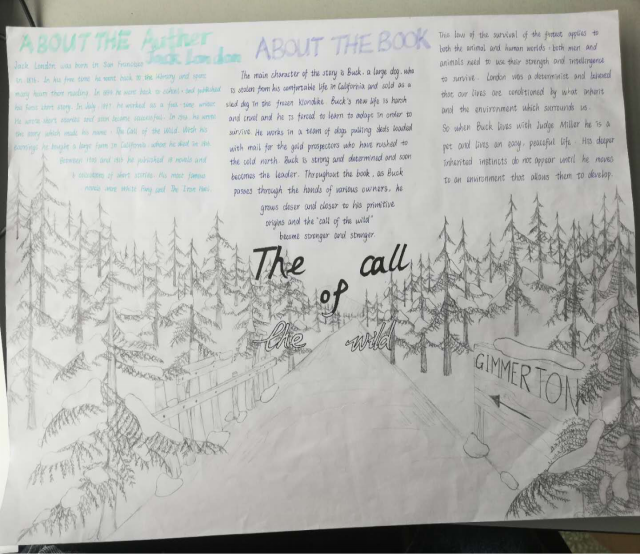 ABOUT THE Author
Jack London
Jack London was born in San Francisco
in 1876. In his free time he went to the library and spent
many hours there reading. In 1895 he went back to school and published
his first short story. In 1899 he worked as a full-time writer
he wrote short stories and soon became successful. In 1903 he wrote
the story which made his name - The Call of the Wild. With his
earnings he bought a large farm in California where he died in
November 1916 and he published 19 novels and
a collection of short stories. His most famous
novels were White Fang and The Iron Heel.
ABOUT THE BOOK
The main character of the story is Buck, a large dog, who
is stolen from his comfortable life in California and sold as a
sled dog in the frozen Klondike. Buck's new life is harsh
and cruel and he is forced to learn to adapt in order to
survive. He works in a team of dogs pulling sleds loaded
with mail for the gold prospectors who have rushed to
the cold north. Buck is strong and determined and soon
becomes the leader. Throughout the book, as Buck
passes through the hands of various owners, he
grows closer and closer to his primitive
origins and the "call of the wild"
become stronger and stronger.
The law of the survival of the fittest applies to
both the animal and human worlds - both men and
animals need to use their strength and intelligence
to survive. London was a determinist and believed
that our lives are conditioned by what others
and the environment which surrounds us.
So when Buck lives with Judge Miller he is a
pet and lives an easy, peaceful life. His deeper
inherited instincts do not appear until he moves
to an environment that allows them to develop.
The call
of
the wild
GIMMERTON